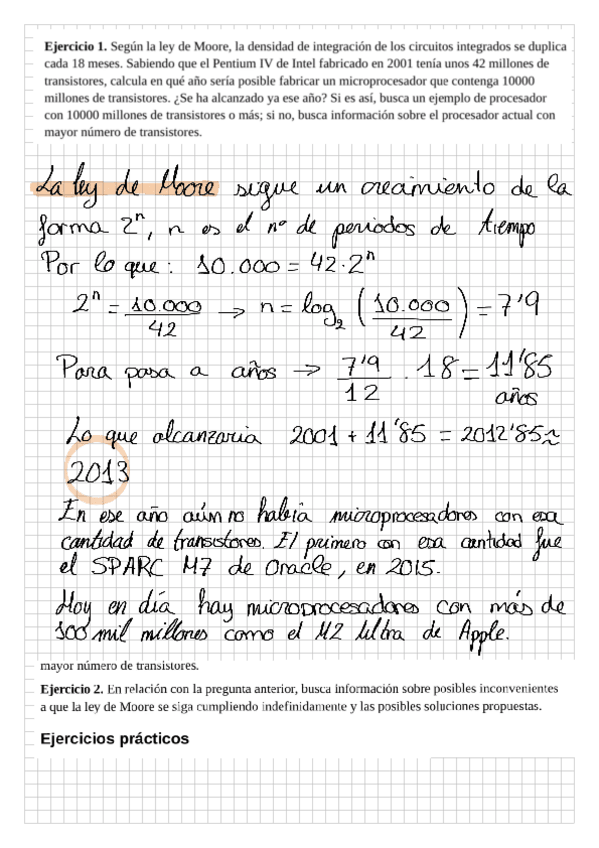 Ejercicio 1. Según la ley de Moore, la densidad de integración de los circuitos integrados se duplica
cada 18 meses. Sabiendo que el Pentium IV de Intel fabricado en 2001 tenía unos 42 millones de
transistores, calcula en qué año sería posible fabricar un microprocesador que contenga 10000
millones de transistores. ¿Se ha alcanzado ya ese año? Si es así, busca un ejemplo de procesador
con 10000 millones de transistores o más; si no, busca información sobre el procesador actual con
mayor número de transistores.
La ley de Moore sigue un crecimiento de la
forma 2ⁿ, n es el nº de periodos de tiempo
Por lo que: 10.000 = 42·2ⁿ
2ⁿ = 10.000/42 → n = log₂ (10.000/42) = 7'9
Para pasa a años → 7'9/12 · 18 = 11'85 años
Lo que alcanzaria 2001 + 11'85 = 2012'85 ≈
2013
En ese año aún no había microprocesadores con esa
cantidad de transistores. El primero con esa cantidad fue
el SPARC M7 de Oracle, en 2015.
Hoy en día hay microprocesadores con más de
100 mil millones como el M2 Ultra de Apple.
mayor número de transistores.
Ejercicio 2. En relación con la pregunta anterior, busca información sobre posibles inconvenientes
a que la ley de Moore se siga cumpliendo indefinidamente y las posibles soluciones propuestas.
Ejercicios prácticos